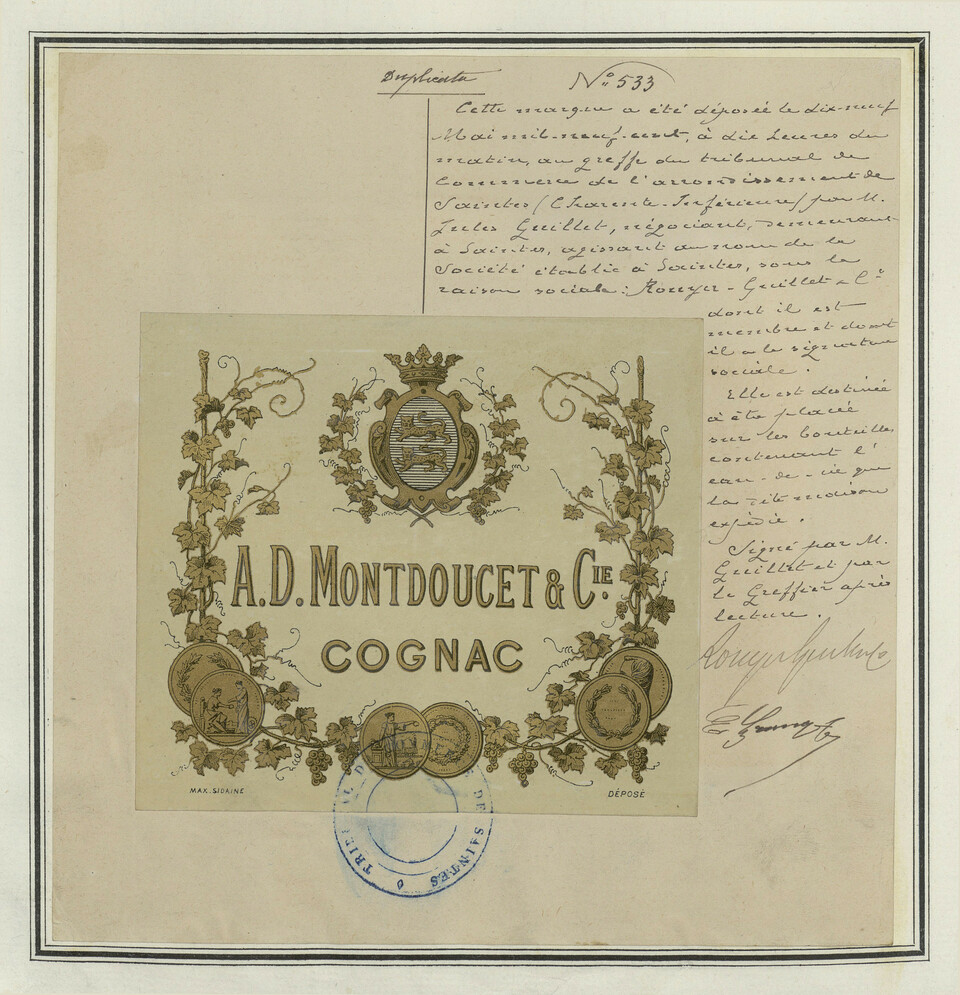 Duplicata
N° 533
Cette marque a été déposée le dix-neuf
Mai mil-neuf-cent, à dix heures du
matin, au greffe du tribunal de
Commerce de l'arrondissement de
Saintes (Charente-Inférieure) par M.
Jules Guillet, négociant, demeurant
à Saintes, agissant au nom de la
Société établie à Saintes, sous la
raison sociale: Rouyer-Guillet & Cie
dont il est
membre et dont
il a la signature
sociale.
Elle est destinée
à être placée
sur les bouteilles
contenant l'
eau-de-vie que
la dite maison
expédie.
Signé par M.
Guillet et par
le Greffier après
lecture.
Rouyer Guillet & Co
A.D. MONTDOUCET & CIE
COGNAC
MAX. SIDAINE
DÉPOSÉ
DE SAINTES